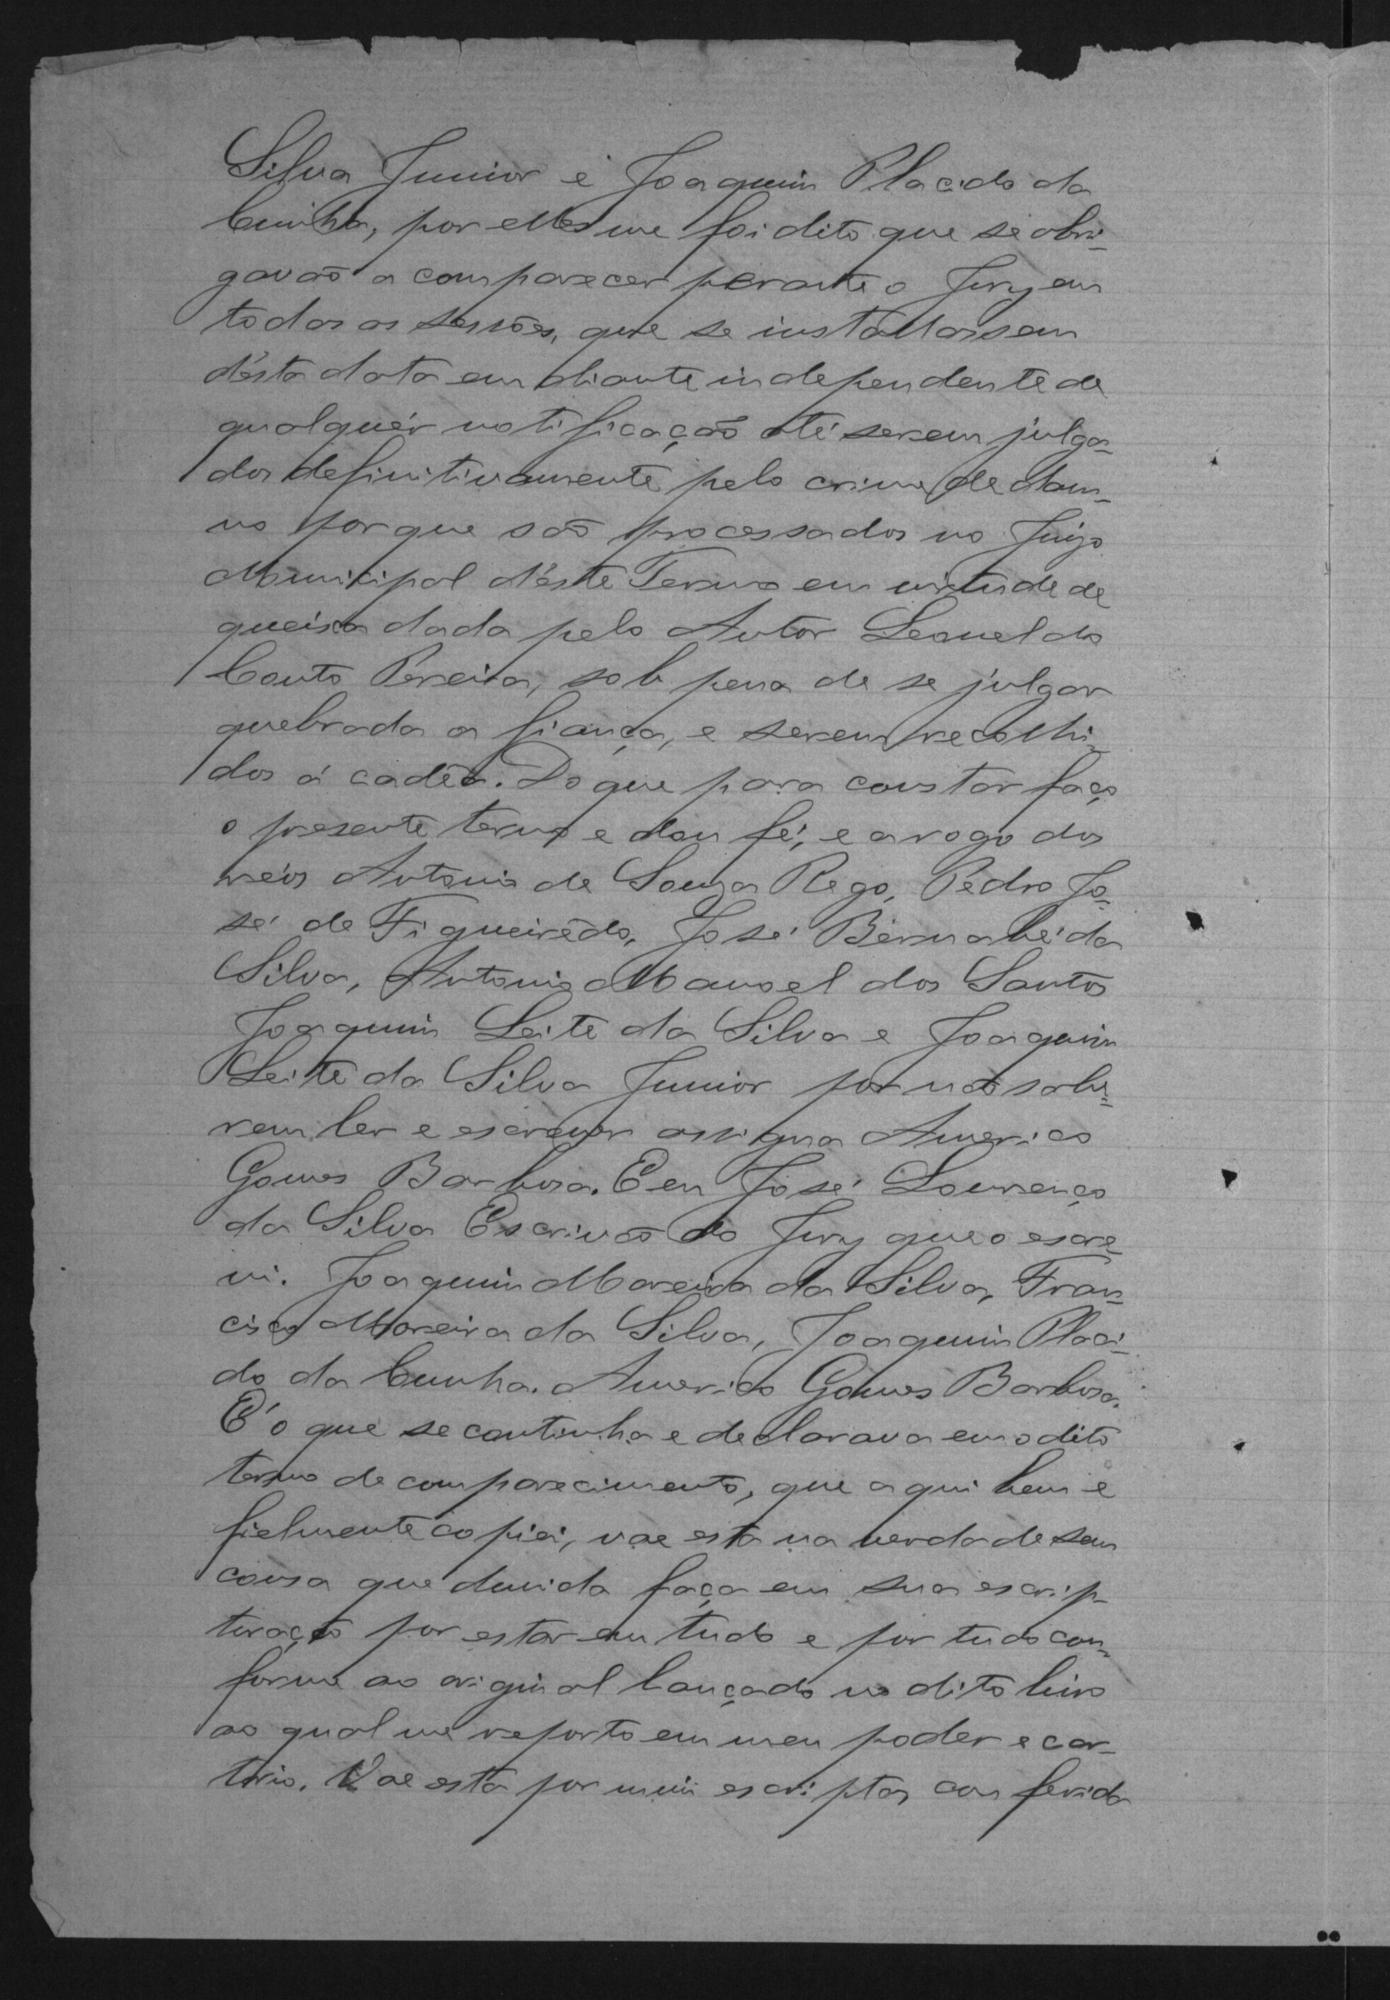 Silva Junior e Joaquim Placido da
Cunha, por elles me foi dito que se obri-
gavão a comparecer perante o Jury em
todas as sessões, que se installassem
d'ésta data em diante independente de
qualquér notificação até serem julga-
dos definitivamente pelo crime de dam-
no porque são processados no Juizo
Municipal d'éste Termo em virtude de
queixa dada pelo Autor Leonel do
Couto Pereira, sob pena de se julgar
quebrada a fiança, e serem recolhi-
dos á cadêa. Do que para constar faço
o presente termo e dou fé, e a rogo dos
réos Antonio de Souza Rego, Pedro Jo-
sé de Figueirêdo, José Bernabé da
Silva, Antonio Manoel dos Santos
Joaquim Leite da Silva e Joaquim
Leite da Silva Junior por não sabe-
rem ler e escrever assigna Americo
Gomes Barbosa. E eu José Lourenço
da Silva Escrivão do Jury que o escre-
vi. Joaquim Moreira da Silva, Fran-
cisco Moreira da Silva, Joaquim Placi-
do da Cunha. Americo Gomes Barbosa.
E' o que se continha e declarava em o dito
termo de comparecimento, que aqui bem e
fielmente copiei, vae esta na verdade sem
cousa que duvida faça em sua escrip-
turação por estar em tudo e por tudo con-
forme ao original lançado no dito livro
ao qual me reporto em meu poder e car-
torio. Vae esta por mim escripta, conferida